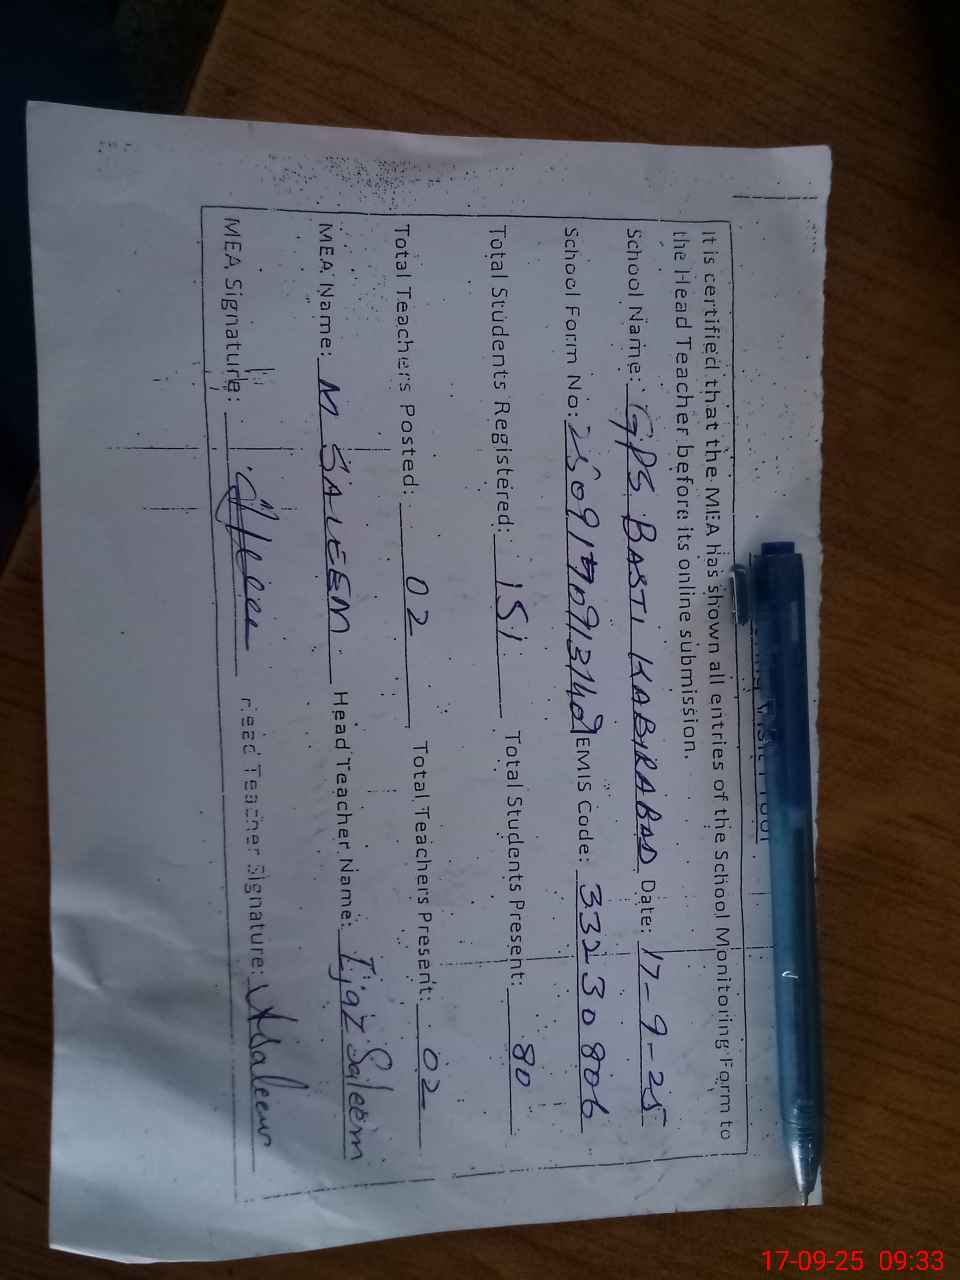 It is certified that the MEA has shown all entries of the School Monitoring Form to
the Head Teacher before its online submission.
School Name: GPS BASTI KABIRABAD Date: 17-9-25
School Form No: EMIS Code: 33230806
Total Students Registered: 151 Total Students Present: 80
Total Teachers Posted: 02 Total Teachers Present: 02
MEA Name: M SALEEM Head Teacher Name: Ijaz Saleem
MEA Signature: Head Teacher Signature:
17-09-25 09:33